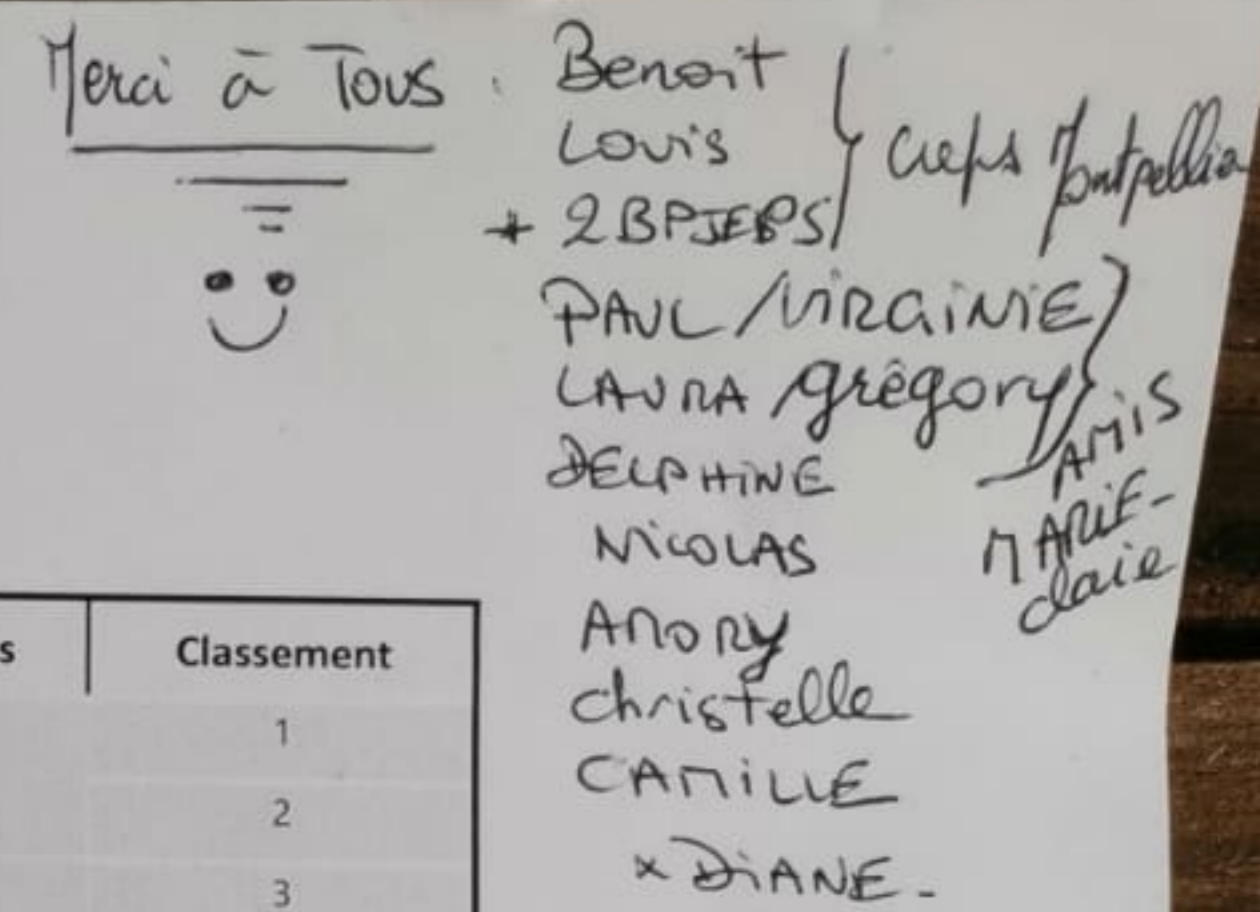 Merci à Tous : Benoit
Louis
+ 2 BPJEPS
Creps Montpellier
PAUL / VIRGINIE
LAURA / grégory
AMIS
MARIE-
claire
DELPHINE
NICOLAS
AMORY
christelle
CAMILLE
x DIANE -
s
Classement
1
2
3